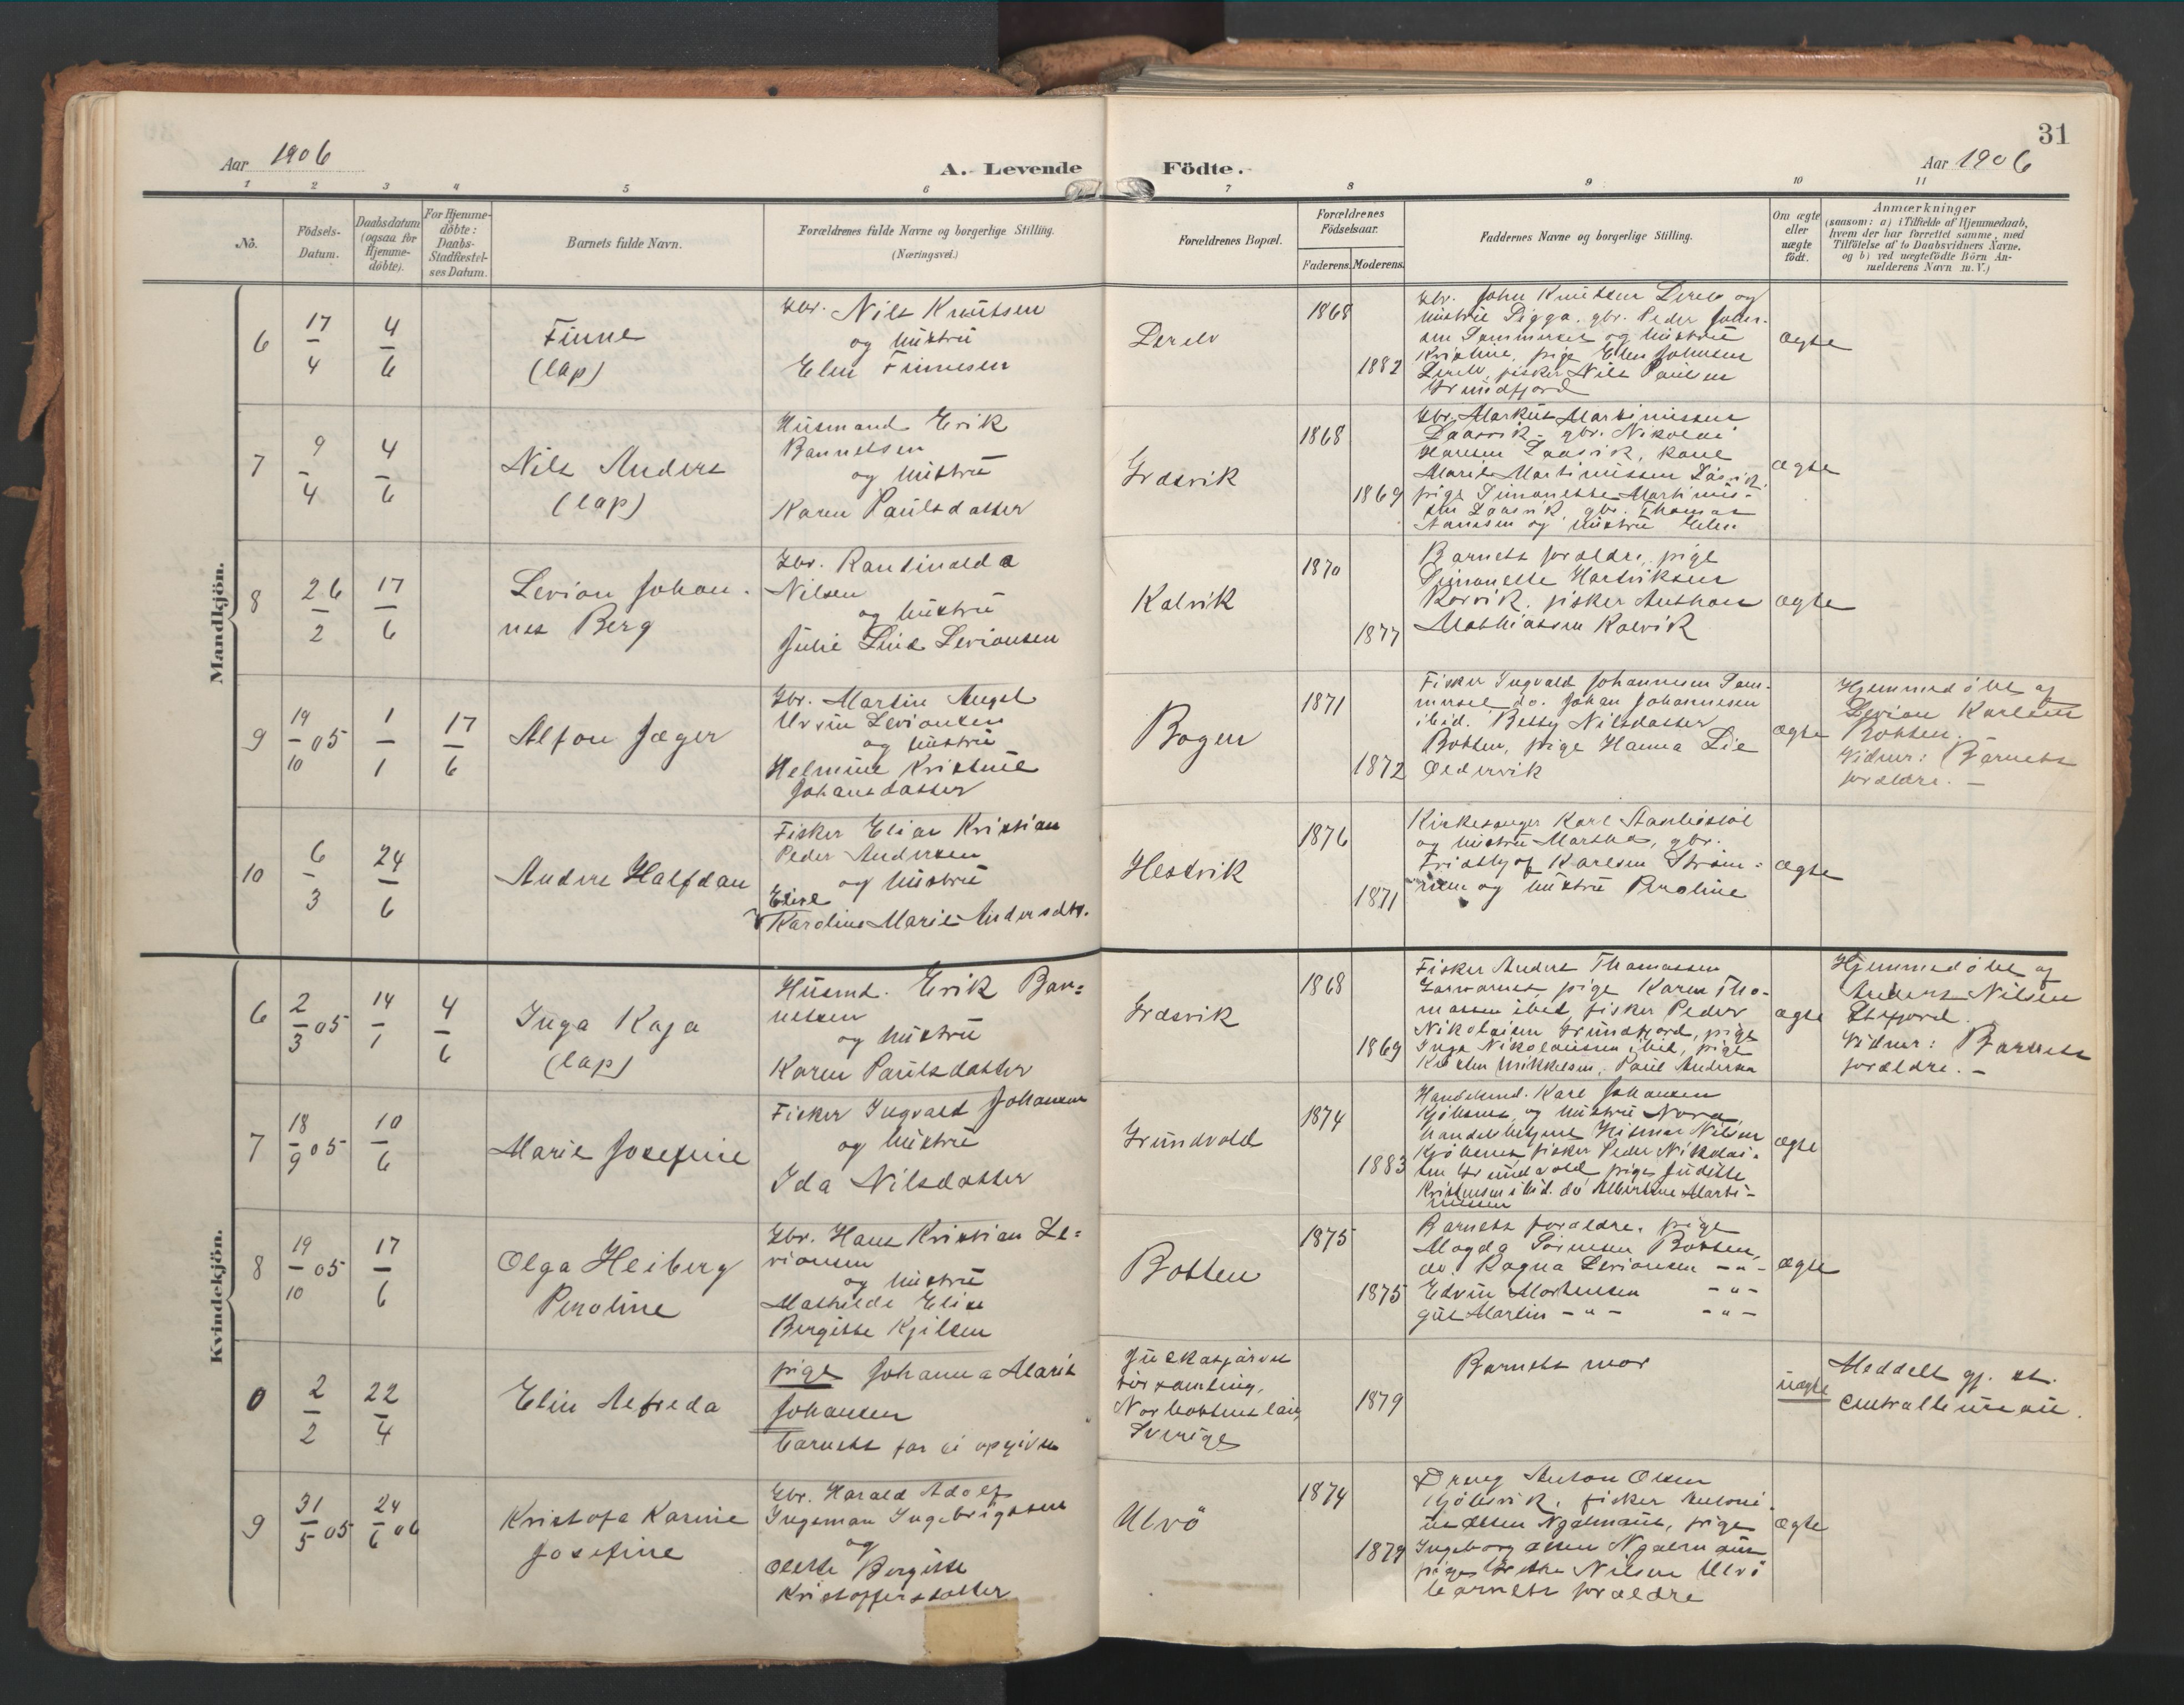 31
Aar 1906
A. Levende Födte.
Aar 1906
1 2 3 4 5 6 7 8 9 10 11
No.
Födsels-Datum.
Daabsdatum (ogsaa for Hjemme-döbte).
For Hjemme-döbte: Daabs-Stadfæstel-ses Datum.
Barnets fulde Navn.
Forældrenes fulde Navne og borgerlige Stilling.
(Næringsvei.)
Forældrenes Bopæl.
Forældrenes Födselsaar.
Faderens. Moderens.
Faddernes Navne og borgerlige Stilling.
Om ægte eller uægte födt.
Anmærkninger
(saasom: a) i Tilfælde af Hjemmedaab,
hvem der har forrettet samme, med
Tilföielse af to Daabsvidners Navne,
og b) ved uægtefödte Börn An-
melderens Navn m. V.)
Mandkjön.
6
17/4
4/6
Finne
(lap)
Gbr. Nils Knutsen
og hustru
Elen Finnesen
1868
1882
Gbr. John Knutsen og
hustru Sigga, gbr. Peder
og hustru
Kristine, pige Elen Johnsen
fisker Nils Paulsen
Grundfjord
ægte
7
9/4
4/6
Nils Anders
(lap)
Husmand Erik
Bannetsen
og hustru
Karen Paulsdatter
Grasvik
1868
1869
Gbr. Markus Martinussen
gbr. Nikolai
Hansen kone
Marie Martinussen
pige Simonette Martinus-
sen gbr. Thomas
Hansen og hustru Elen
ægte
8
26/2
17/6
Levion Johan-
nes Berg
Gbr. Rantinald a
Nilsen
og hustru
Julie Lind Levionsen
Kalvik
1870
1877
Barnets forældre, pige
Simonette Hartviksen
Korvik, fisker Anthon
Mathiassen Kalvik
ægte
9
19/10 05
1/1
17/6
Alfon Jæger
Gbr. Martin Angel
Levionsen
og hustru
Helmine Kristine
Johansdatter
Bogen
1871
1872
Fisker Ingvald Johannesen Som-
merset, do. Johan Johannesen
ibid. Betsy Nilsdatter
Botten, pige Hanna Lie
ægte
Hjemmedöbt af
Levion Karlsen
Botten.
Vidner: Barnets
forældre. –
10
6/3
24/6
Anders Halfdan
Fisker Elias Kristian
Peder Andersen
og hustru
Elise
Karoline Marie Andersdtr.
Hestvik
1876
1871
Kirkesanger Karl
og hustru Martha, gbr.
Fridthjof Karlsen Ström-
og hustru Peroline
ægte
Kvindekjön.
6
2/3 05
14/1
4/6
Inga Kaja
(lap)
Husmd. Erik Ban=
netsen
og hustru
Karen Paulsdatter
Grasvik
1868
1869
Fisker Anders Thomassen
pige Karen Tho-
massen ibid, fisker Peder
Nikolaisen Grundfjord, pige
Inga Nikolaisen ibid, pige
Mikkelsen, Paul Andersen
ægte
Hjemmedöbt af
Anders Nilsen
Vidner: Barnets
forældre. –
7
18/9 05
10/6
Marie Josefine
Fisker Ingvald Johansen
og hustru
Ida Nilsdatter
Grundvold
1874
1883
Handelsmd. Karl Johansen
Kjöbsnes og hustru Nora,
handelsbetjent Hilmar Nilsen
Kjöbsnes, fisker Peder Nikolai-
sen Grundvold, pige Juditte
Kristensen ibid. do Albertine Marti-
nussen
ægte
8
19/10 05
17/6
Olga Heiberg
Peroline
Gbr. Hans Kristian Le=
vionsen
og hustru
Mathilde Elise
Bergitte Kjilsen
Botten
1875
1875
Barnets forældre, pige
Magda Sörensen Botten,
do. Ragna Levionsen – " –
Edvin Mortensen – " –
gut Martin – " – – " –
ægte
0
2/2
22/4
Elin Alfreda
pige Johanna Marie
Johansen
barnets far ei opgiven
Juckasjärvi
församling,
Norbottens län,
Sverige
1879
Barnets mor
uægte
Meddelt gj. st.
centralbureau.
9
31/5 05
24/6 06
Kristofa Karine
Josefine
Gbr. Harald Adolf
Ingeman Ingebrigtsen
og
Olette Bergitte
Kristoffersdatter
Ulvö
1874
1879
Dreng Anton Olsen
Kjöbsvik, fisker Antoni-
us Olsen pige
Ingeborg Olsen
pige Nilsen Ulvö
barnets forældre
ægte